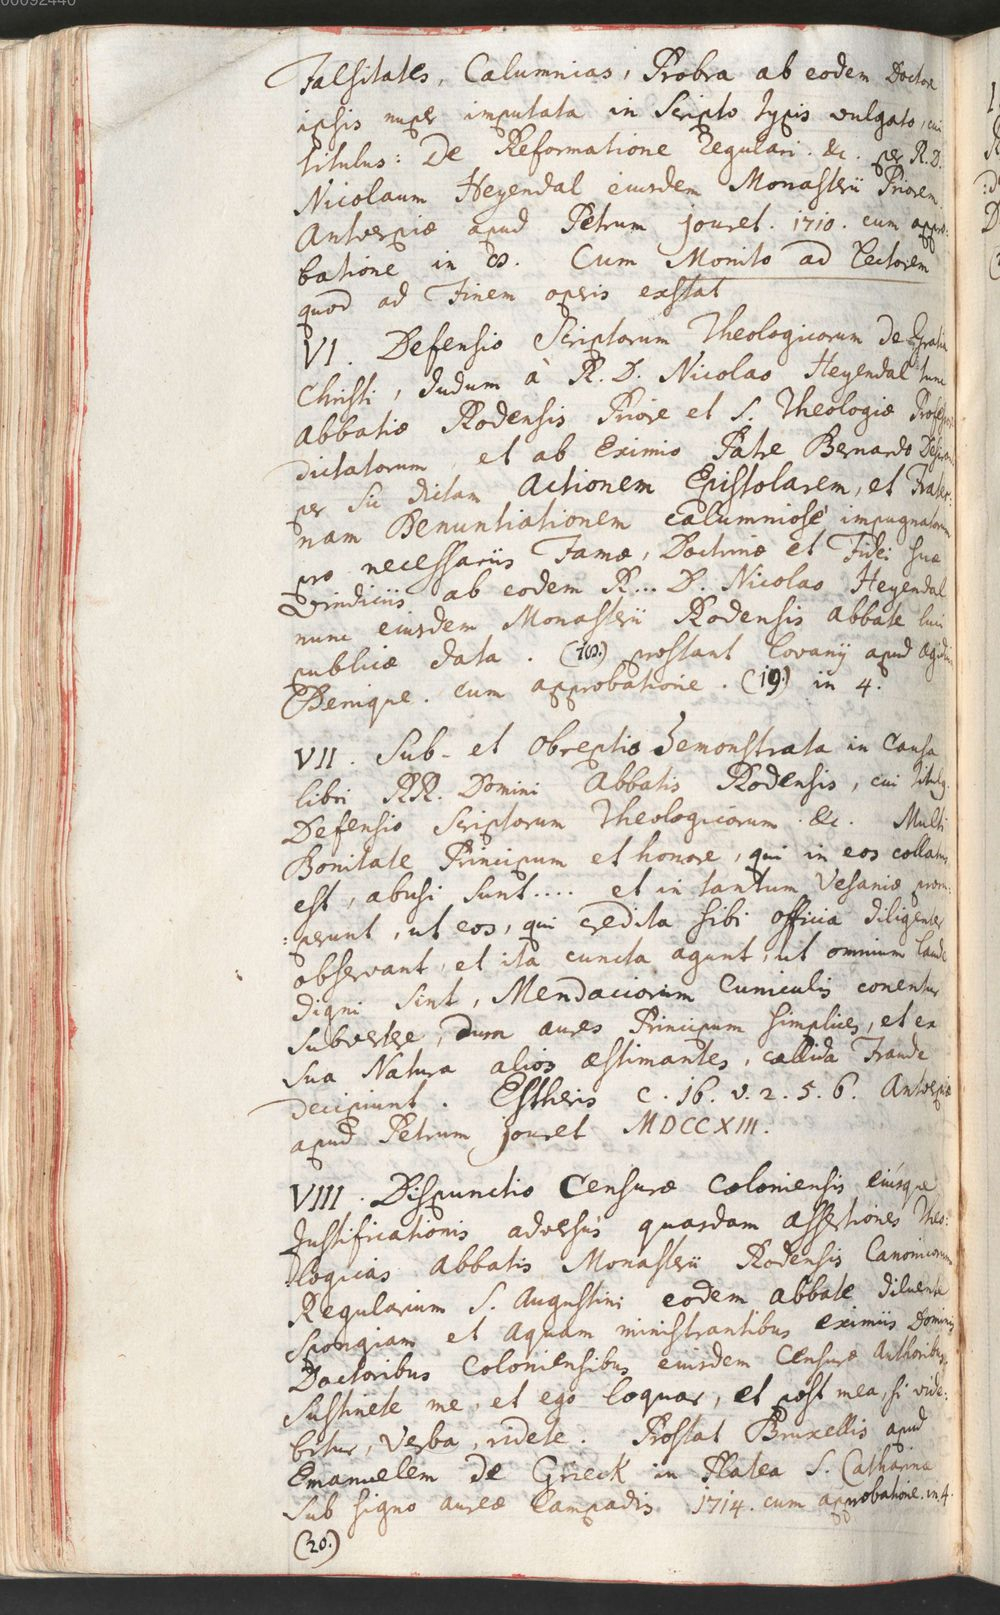 00092440
Falsitates, Calumnias, Probra ab eodem Doctore
ipsis nuper imputata in Scripto typis vulgato, cui
titulus: De Reformatione Regulari. &c. per R. D.
Nicolaum Heyendal eiusdem Monasterii Priorem.
Antverpiæ apud Petrum jouret. 1710. cum appro:
batione in 8. Cum Monito ad Lectorem
quod ad Finem operis exstat
VI. Defensio Scriptorum Theologicorum De Gratia
Christi, dudum à R. D. Nicolao Heyendal tunc
Abbatiæ Rodensis Priore et S. Theologiæ Professore
dictatorum, et ab Eximio Patre Bernardo Desirant
per sic dictam Actionem Epistolarem, et Frater:
nam Denuntiationem calumniosè impugnatorum
pro necessariis Famæ, Doctrinæ et Fidei suæ
vindiciis ab eodem R... D. Nicolao Heyendal
nunc eiusdem Monasterii Rodensis Abbate luci
publicæ data. (18.) prostant Lovanij apud Ægidium
Denique. cum approbatione. (19.) in 4.
VII. Sub- et Obreptio Demonstrata in Causa
libri RR. Domini Abbatis Rodensis, cui titulg.
Defensio Scriptorum Theologicorum. &c. Multi
Bonitate Principum et honore, qui in eos collatus
est, abusi sunt.... et in tantum Vesaniæ proru:
:perunt, ut eos, qui credita sibi officia diligenter
observant, et ita cuncta agunt, ut omnium laude
digni sint, Mendaciorum Cuniculis conentur
subvertere, dum aures Principum simplices, et ex
sua Natura alios æstimantes, callida Fraude
decipiunt. Estheris c. 16. v. 2. 5. 6. Antverpiæ
apud Petrum jouret MDCCXIII.
VIII. Dispunctio Censuræ Coloniensis eiúsque
Justificationis adversùs quasdam assertiones Theo:
:logicas Abbatis Monasterii Rodensis Canonicorum
Regularium S. Augustini eodem Abbate diluente
Spongiam et Aquam ministrantibus eximiis Dominis
Doctoribus Coloniensibus eiusdem Censuræ Authoribus.
Sustinete me, et ego loquar, et post mea, si vide:
bitur, Verba, ridete. Prostat Bruxellis apud
Emanuelem de Grieck in Platea S. Catharina
sub signo aureæ Lampadis 1714. cum approbatione. in 4.
(20.)